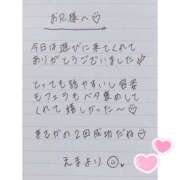 お兄様へ♡
今日は遊びに来てくれて
ありがとうございました
とっても話やすいし容姿
もフェラもベタ褒めして
くれて嬉しかった〜♡
またかれ2回成功だね♡
えまより